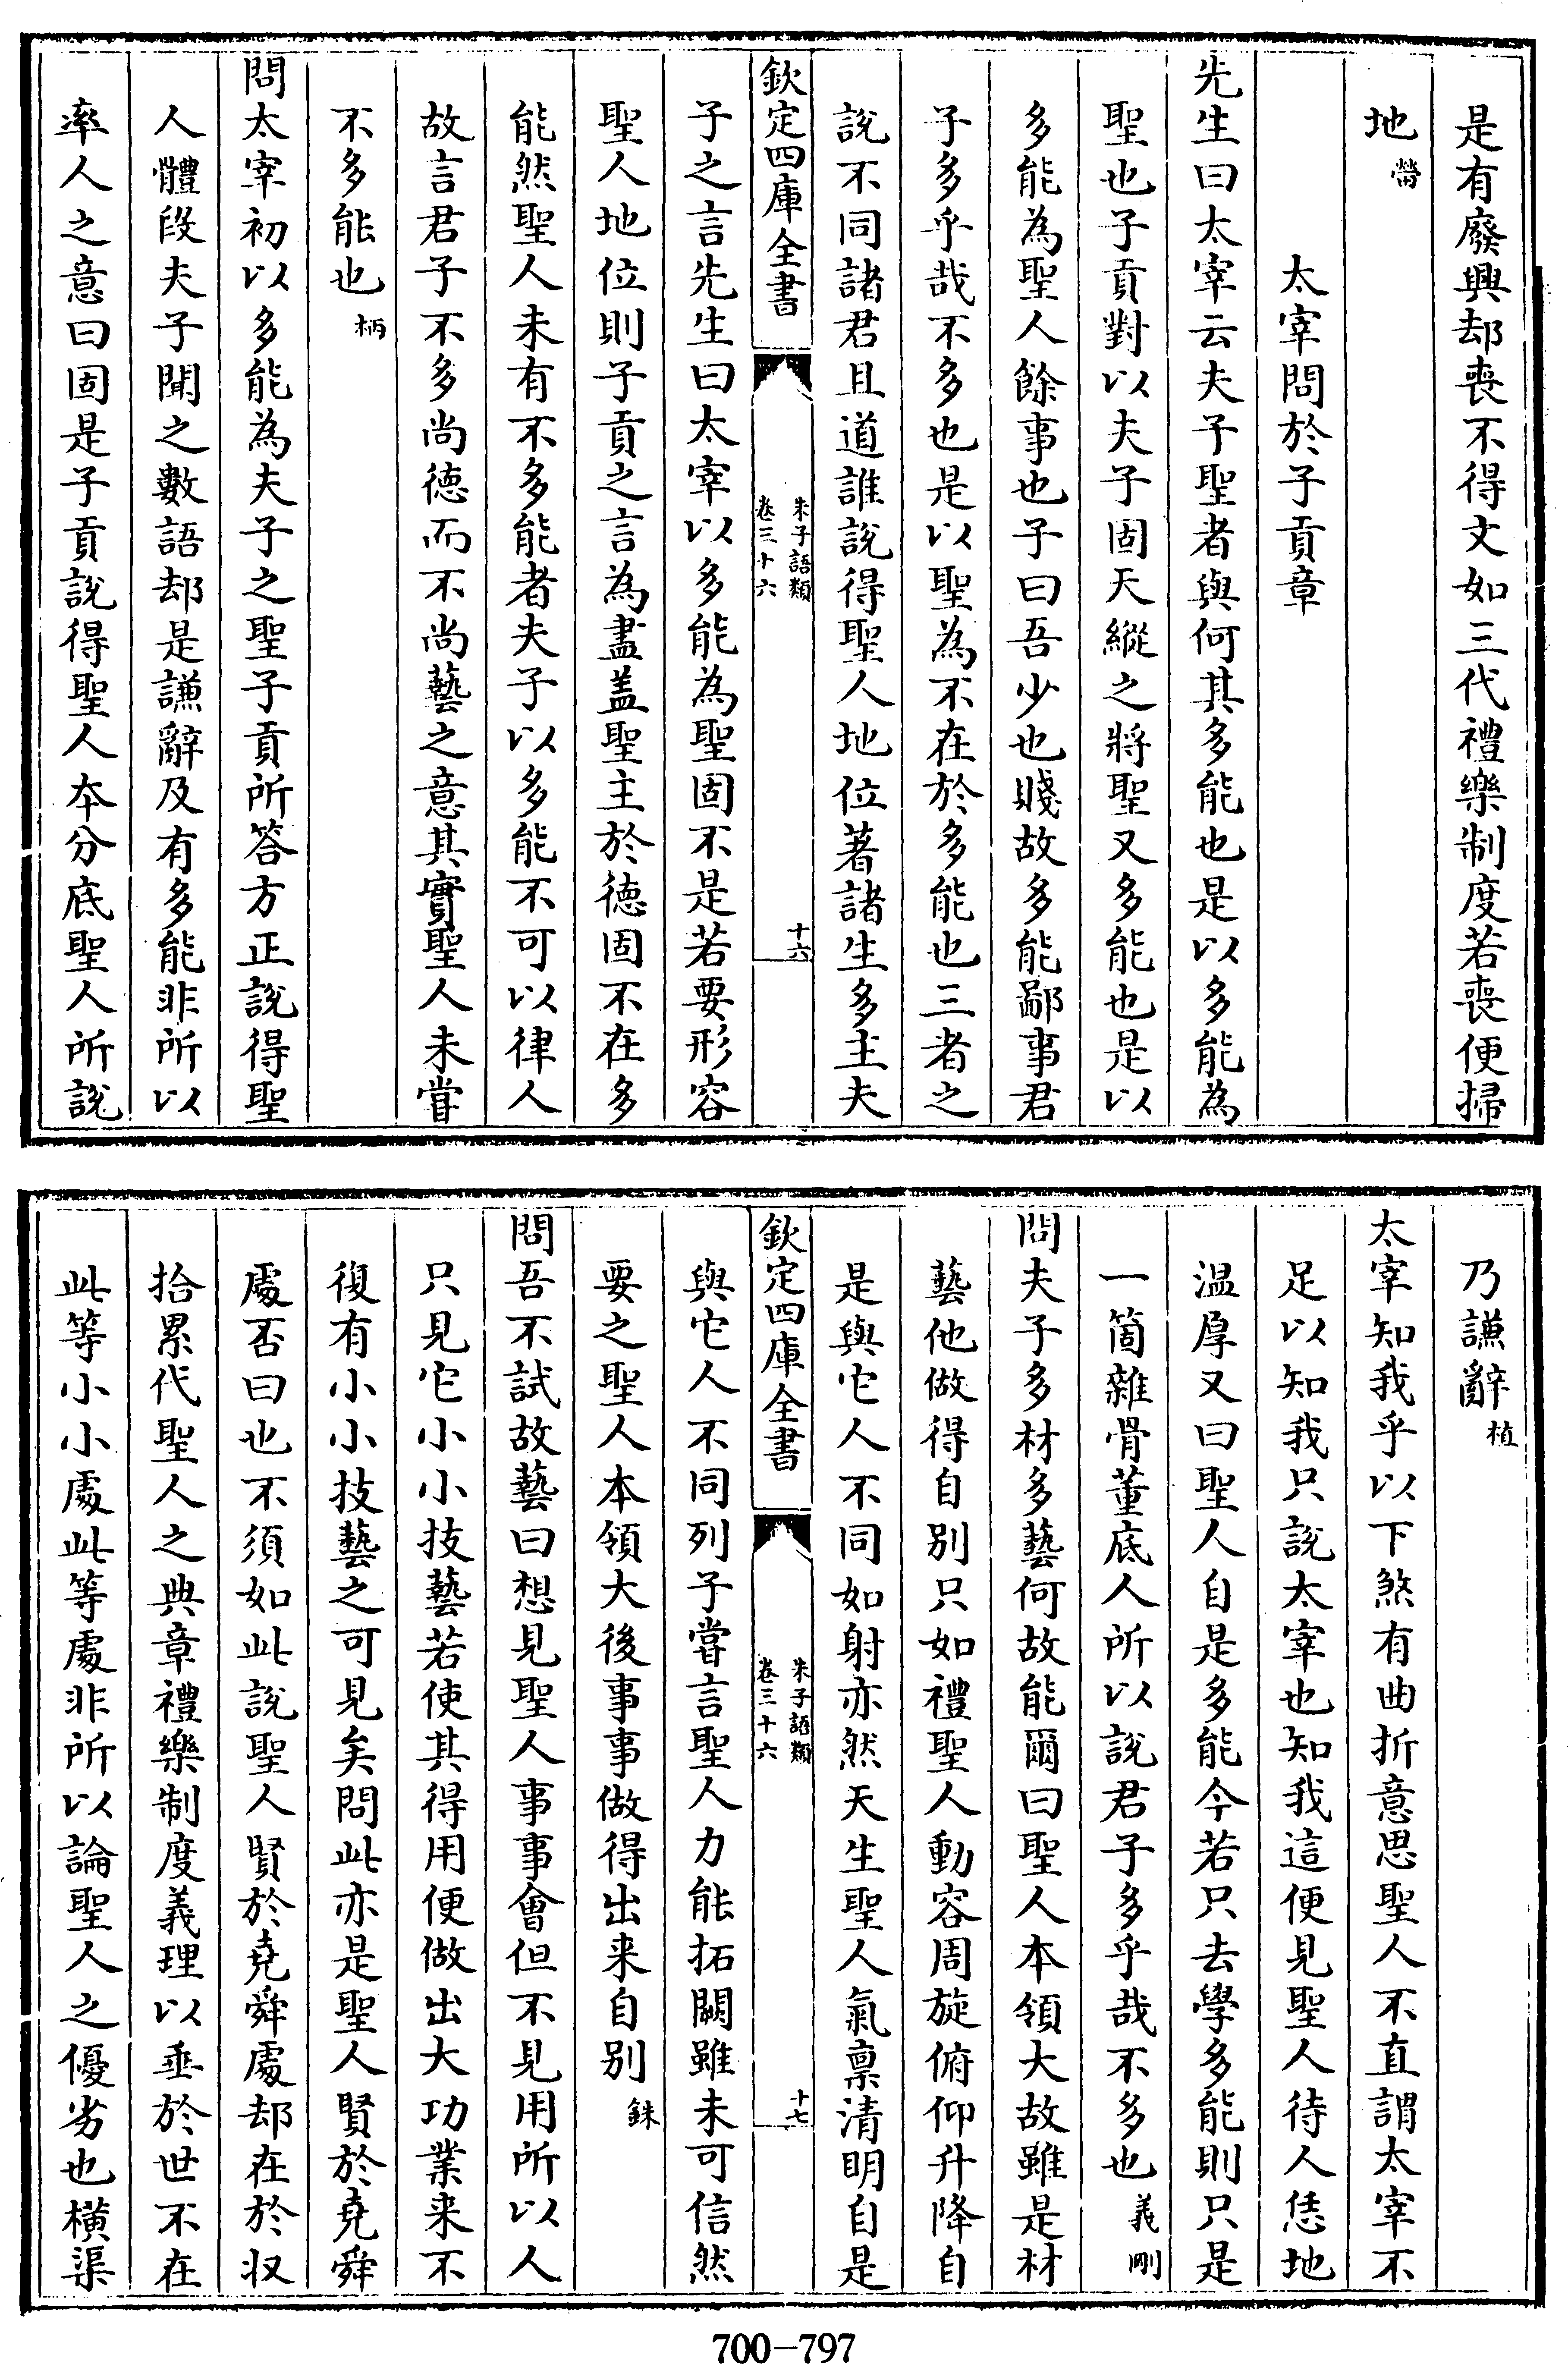 是有廢興却喪不得文如三代禮樂制度若喪便掃
地㽦
太宰問於子貢章
先生曰太宰云夫子聖者與何其多能也是以多能為
聖也子貢對以夫子固天縱之將聖又多能也是以
多能為聖人餘事也子曰吾少也賤故多能鄙事君
子多乎哉不多也是以聖為不在於多能也三者之
說不同諸君且道誰說得聖人地位著諸生多主夫
欽定四庫全書
朱子語類
卷三十六
十六
子之言先生曰太宰以多能為聖固不是若要形容
聖人地位則子貢之言為盡盖聖主於徳固不在多
能然聖人未有不多能者夫子以多能不可以律人
故言君子不多尚徳而不尚藝之意其實聖人未嘗
不多能也柄
問太宰初以多能為夫子之聖子貢所答方正說得聖
人體段夫子聞之數語却是謙辭及有多能非所以
率人之意曰固是子貢說得聖人本分底聖人所說
乃謙辭植
太宰知我乎以下煞有曲折意思聖人不直謂太宰不
足以知我只說太宰也知我這便見聖人待人恁地
温厚又曰聖人自是多能今若只去學多能則只是
一箇雜骨董底人所以說君子多乎哉不多也義剛
問夫子多材多藝何故能爾曰聖人本領大故雖是材
藝他做得自别只如禮聖人動容周旋俯仰升降自
是與它人不同如射亦然天生聖人氣禀清明自是
欽定四庫全書
朱子語類
卷三十六
十七
與它人不同列子嘗言聖人力能拓關雖未可信然
要之聖人本領大後事事做得出来自别銖
問吾不試故藝曰想見聖人事事會但不見用所以人
只見它小小技藝若使其得用便做出大功業来不
復有小小技藝之可見矣問此亦是聖人賢於堯舜
處否曰也不須如此說聖人賢於堯舜處却在於収
拾累代聖人之典章禮樂制度義理以垂於世不在
此等小小處此等處非所以論聖人之優劣也横渠
700-797